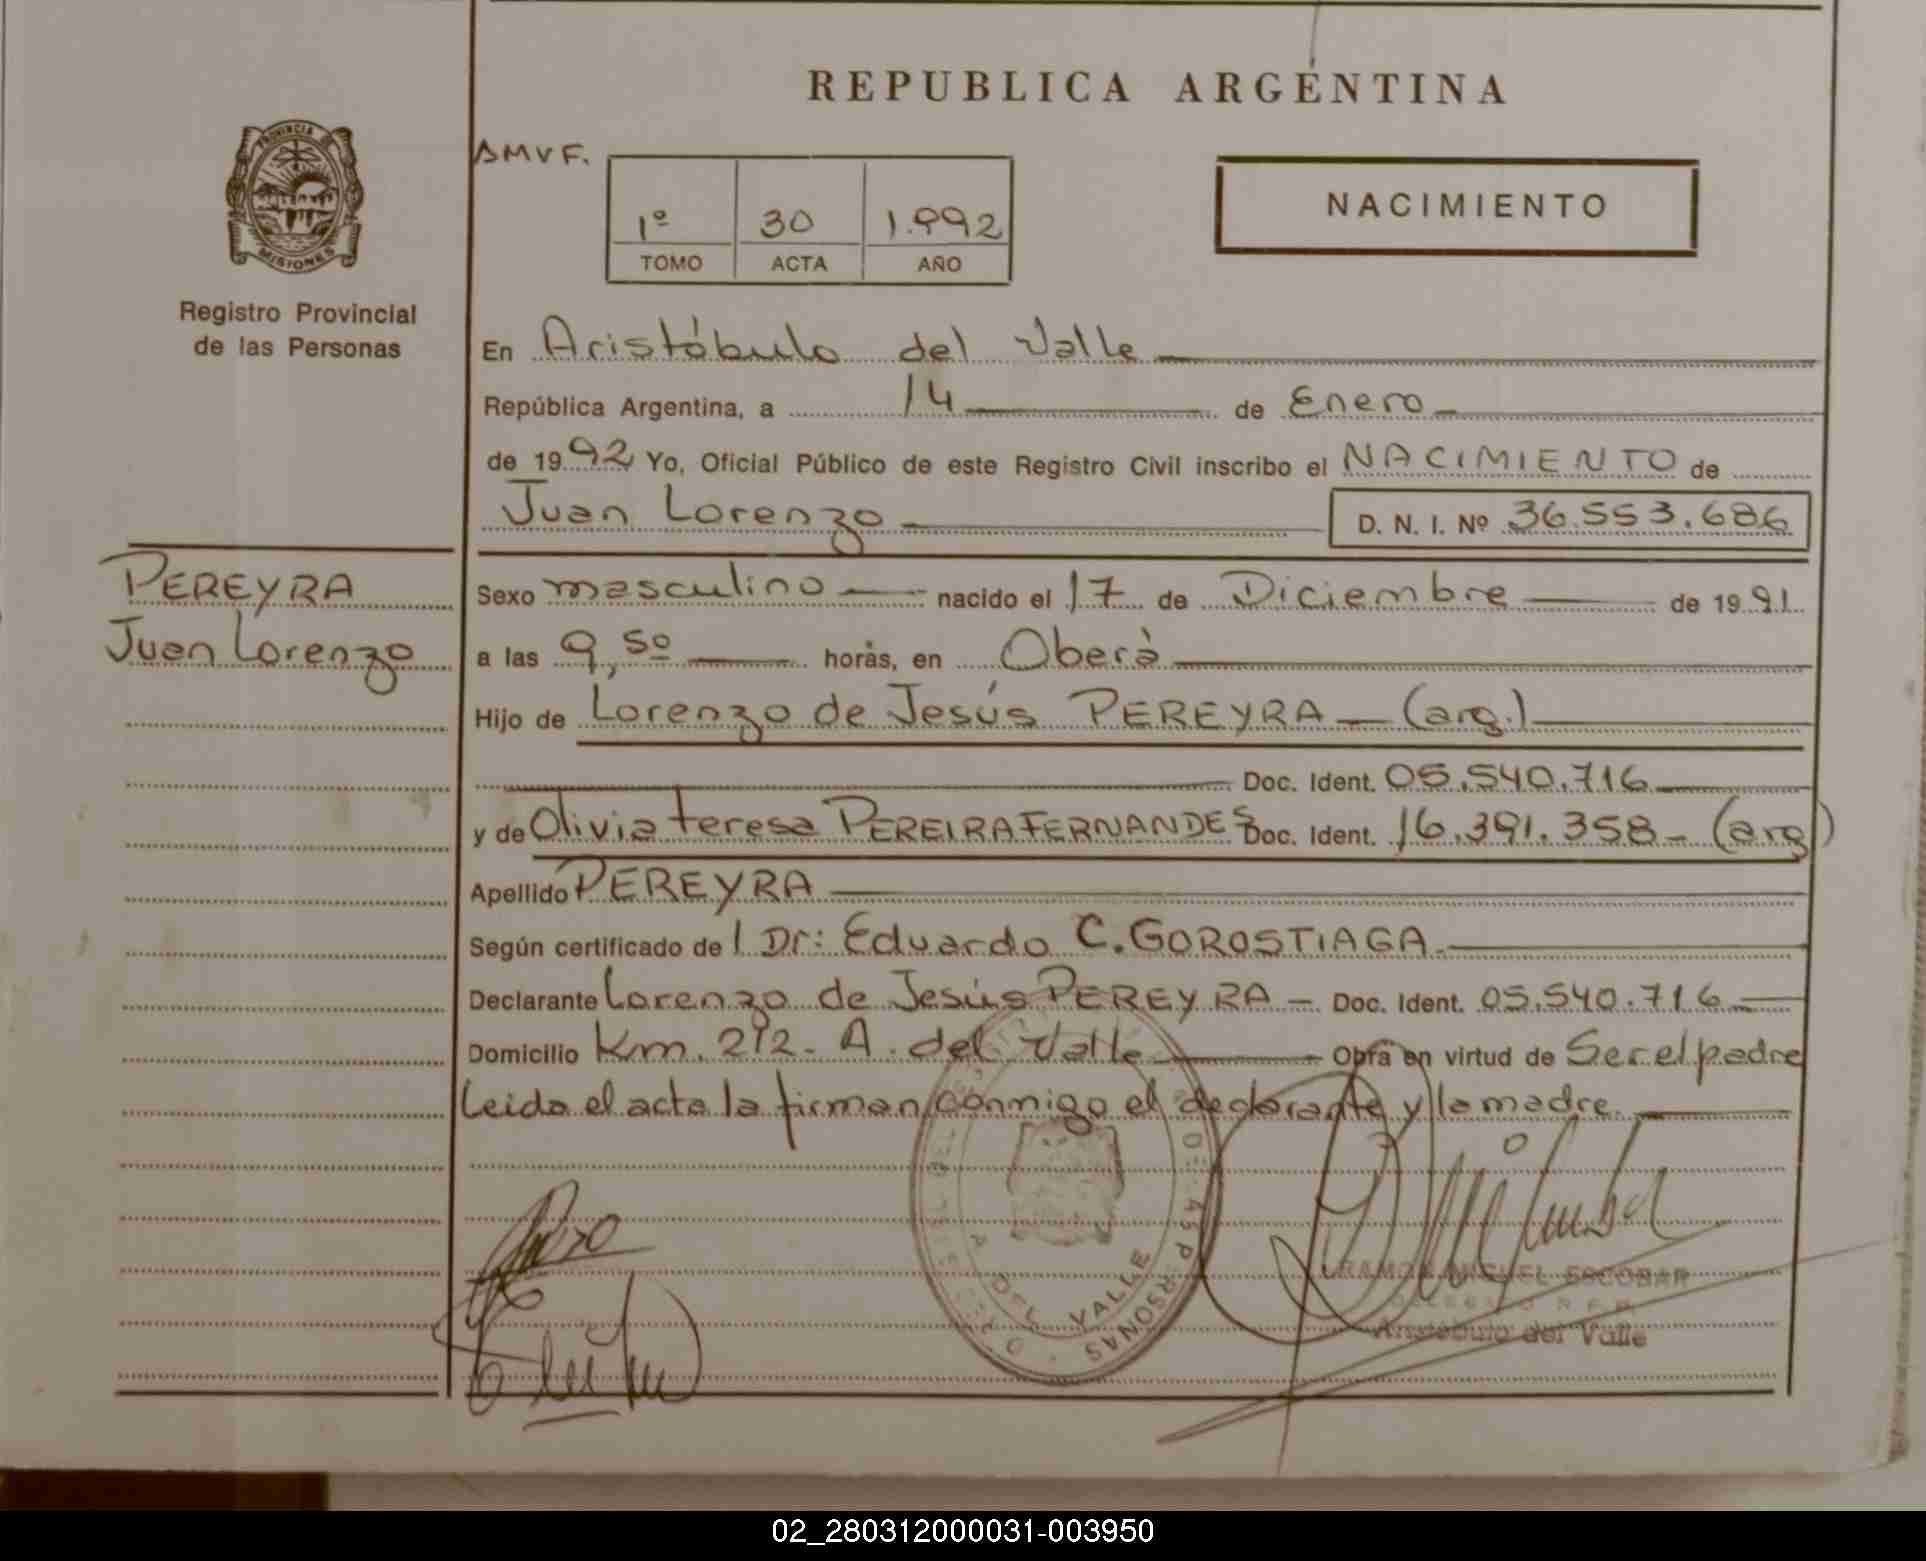 REPUBLICA ARGENTINA
PROVINCIA DE
MISIONES
Registro Provincial
de las Personas
AMVF.
1º 30 1.992
TOMO ACTA AÑO
NACIMIENTO
En Aristóbulo del Valle
República Argentina, a 14 de Enero
de 1992 Yo, Oficial Público de este Registro Civil inscribo el NACIMIENTO de
Juan Lorenzo D. N. I. Nº 36.553.686
PEREYRA
Juan Lorenzo
Sexo masculino nacido el 17 de Diciembre de 1991
a las 9,50 horas, en Oberá
Hijo de Lorenzo de Jesús PEREYRA (arg.)
Doc. Ident. 05.540.716
y de Olivia teresa PEREIRA FERNANDES Doc. Ident. 16.391.358 (arg)
Apellido PEREYRA
Según certificado de l Dr: Eduardo C. GOROSTIAGA.
Declarante Lorenzo de Jesús PEREYRA Doc. Ident. 05.540.716
Domicilio Km. 212 - A. del Valle Obra en virtud de Ser el padre
Leida el acta la firman conmigo el declarante y la madre.
DE LAS PERSONAS
A. DEL VALLE
RAMON MIGUEL ESCOBAR
Aristóbulo del Valle
02_280312000031-003950